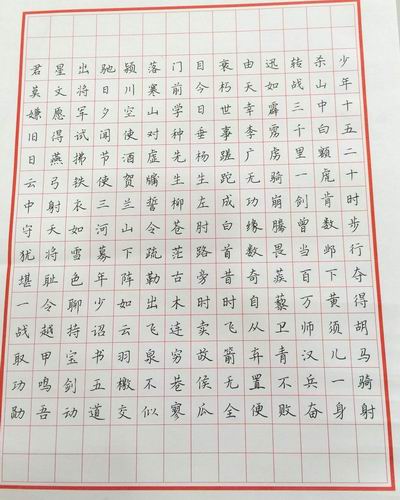 少年十五二十时步行夺得胡马骑射
杀山中白额虎肯数邺下黄须儿一身
转战三千里一剑曾当百万师汉兵奋
迅如霹雳虏骑崩腾畏蒺藜卫青不败
由天幸李广无功缘数奇自从弃置便
衰朽世事蹉跎成白首昔时飞箭无全
目今日垂杨生左肘路旁时卖故侯瓜
门前学种先生柳苍茫古木连穷巷寥
落寒山对虚牖誓令疏勒出飞泉不似
颍川空使酒贺兰山下阵如云羽檄交
驰日夕闻节使三河募年少诏书五道
出将军试拂铁衣如雪色聊持宝剑动
星文愿得燕弓射天将耻令越甲鸣吾
君莫嫌旧日云中守犹堪一战取功勋